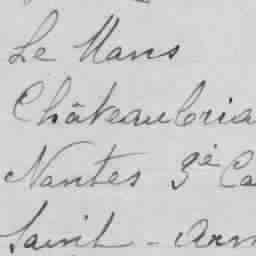 Le Mans
Châteaubria
Nantes 3e Ca
Saint - Arm